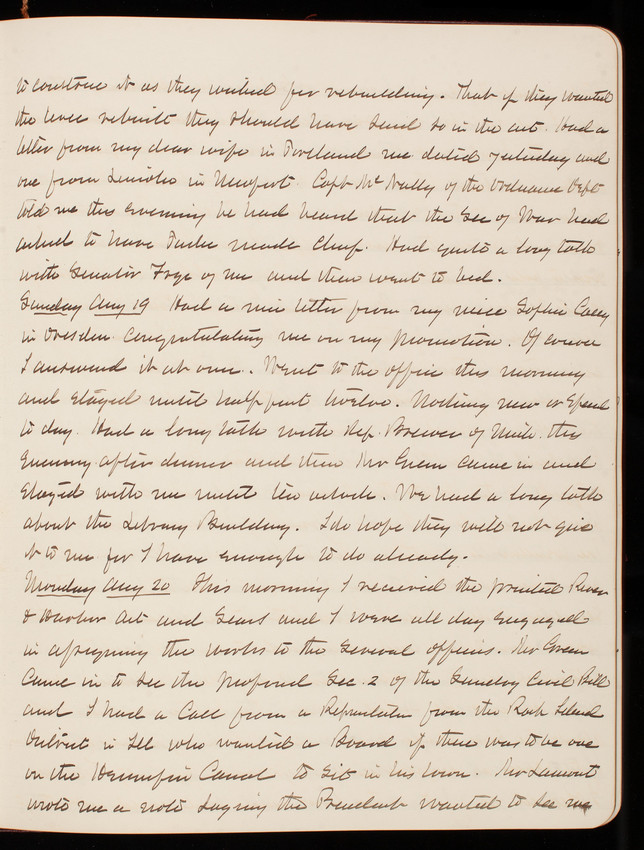 to construe it as they wished for rebuilding. That if they wanted
the levee rebuilt they should have said so in the act. Had a
letter from my dear wife in Portland me dated yesterday and
one from in Newport. Capt McNally of the Ordnance Dept
told me this evening he had heard that the Sec of War had
asked to have Parke made Chief. Had quite a long talk
with Senator Frye of me and then went to bed.
Sunday Aug 19 Had a nice letter from my niece Sophie Casey
in Dresden congratulating me on my promotion. Of course
I answered it at once. Went to the office this morning
and stayed until half past twelve. Nothing new or special
to day. Had a long talk with Rep. Brewer of Mich. this
evening after dinner and then Mr Green came in and
stayed with me until ten oclock. We had a long talk
about the Library Building. I do hope they will not give
it to me for I have enough to do already.
Monday Aug 20 This morning I received the printed River
& Harbor Act and Sears and I were all day engaged
in assigning the works to the several officers. Mr Green
came in to see the proposed Sec. 2 of the Sunday Civil Bill
and I had a call from a from the Rock Island
District in Ill who wanted a Board if there was to be one
on the Hennepin Canal to sit in his town. Mr Lamont
wrote me a note saying the President wanted to see me